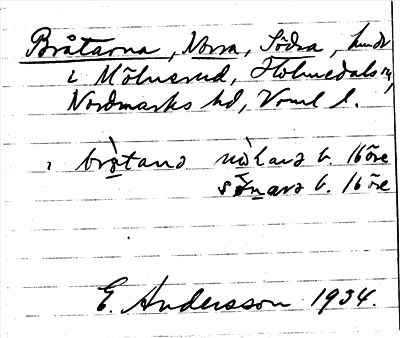 Bråtarna, Norra, Södra, hmdr
i Mölnerud, Holmedals sn,
Nordmarks hd, Värml l.
i bråtano nòlars b. 16öre
sønars b. 16öre
E. Andersson 1934.